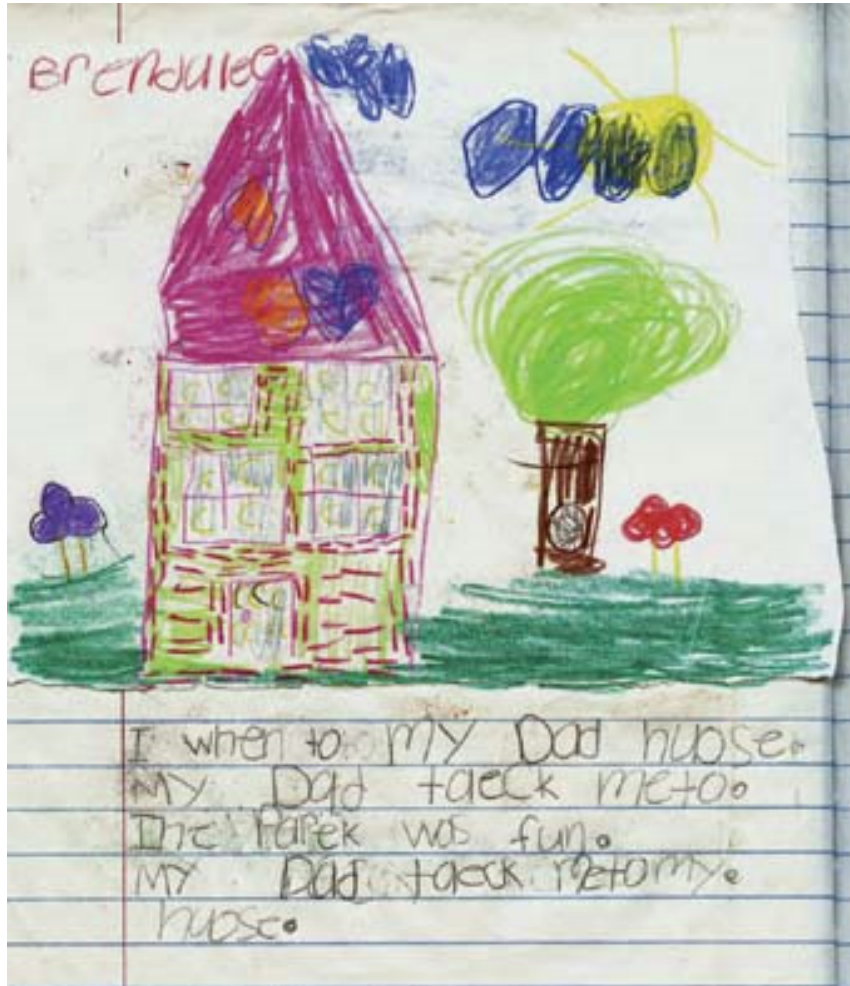 Brendulee
I when to my Dad huose.
My Dad taeck me to.
The Parek was fun.
My Dad taeck me to my.
huose.